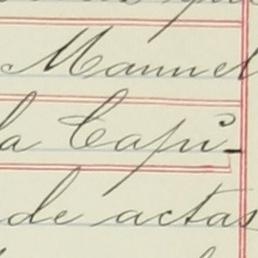 Manuel
la Capi-
de actas